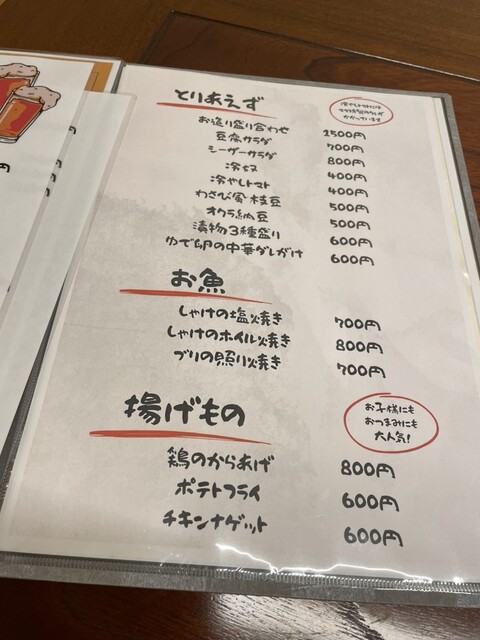 円
とりあえず
冷やしトマトには
かかっています
お造り盛り合わせ 1500円
豆腐サラダ 700円
シーザーサラダ 800円
冷奴 400円
冷やしトマト 400円
わさび風枝豆 500円
オクラ納豆 500円
漬物3種盛り 600円
ゆで卵の中華ダレがけ 600円
お魚
しゃけの塩焼き 700円
しゃけのホイル焼き 800円
ブリの照り焼き 700円
揚げもの
お子様にも
おつまみにも
大人気!
鶏のからあげ 800円
ポテトフライ 600円
チキンナゲット 600円